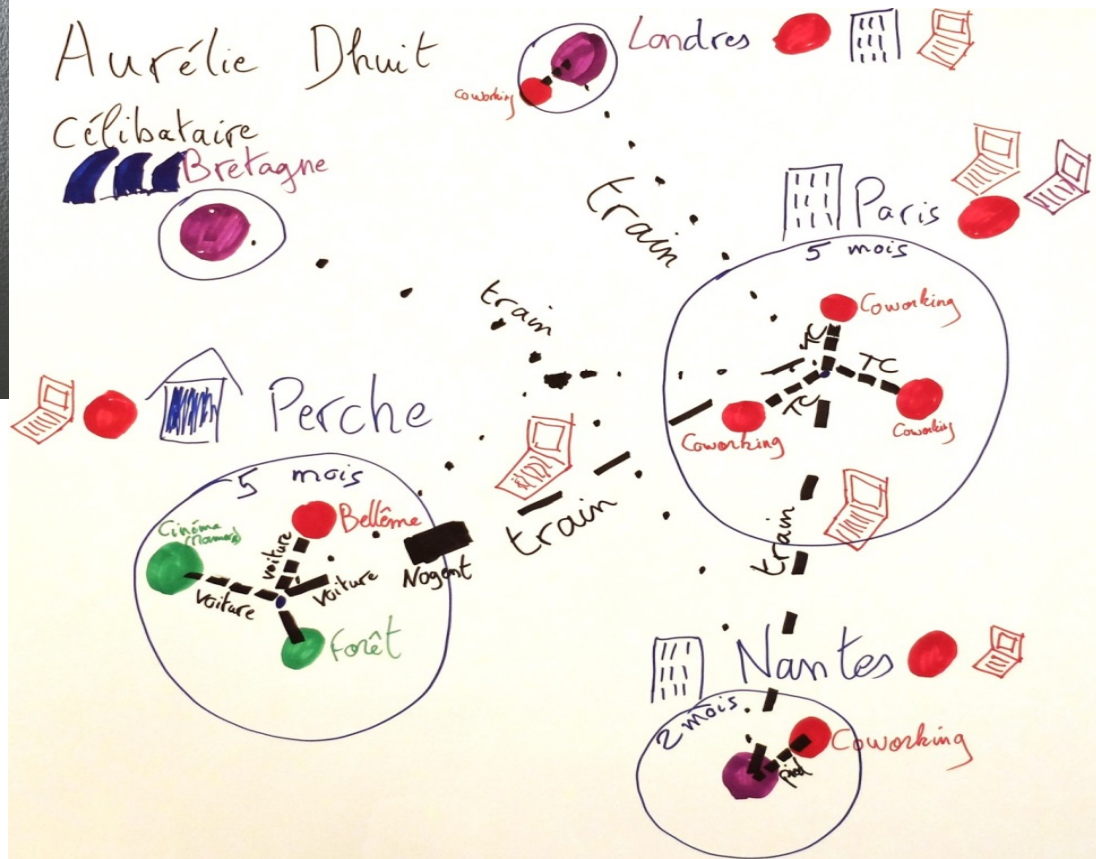 Aurélie Dhuit
Célibataire
Bretagne
Londres
Coworking
train
Paris
5 mois
Coworking
TC
TC
TC
Coworking
Coworking
train
Perche
5 mois
Cinéma
Bellême
voiture
voiture
voiture
Forêt
Nogent
train
train
Nantes
2 mois
Coworking
pied